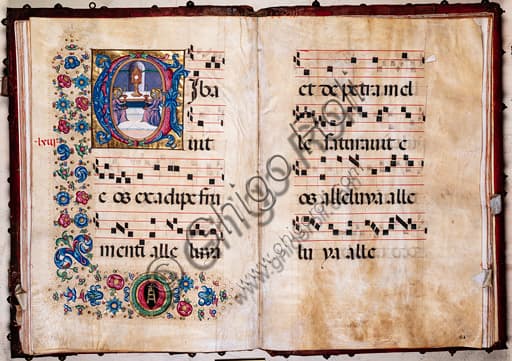 lxiiij
Ciba
uit
e os ex adipe fru
menti alle luya
et de petra mel
le saturauit e
os alleluya alle
lu ya alle
© Ghigo Roli
www.ghigoroli.com